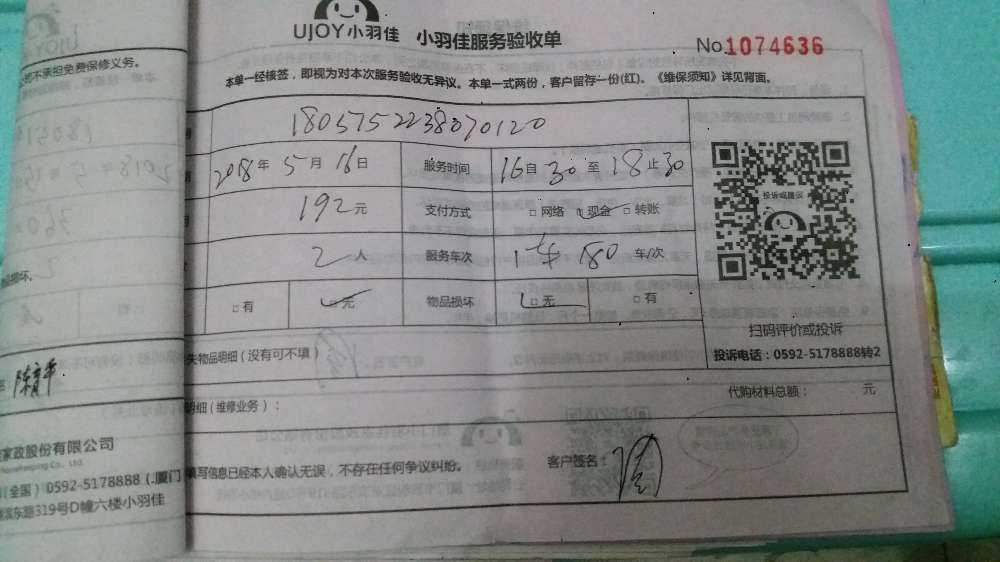 UJOY小羽佳 小羽佳服务验收单
No.1074636
本单一经核签，即视为对本次服务验收无异议。本单一式两份，客户留存一份(红)。《维保须知》详见背面。
1805752238070120
2018年 5月 16日 服务时间 16自30至18止30
192元 支付方式 □网络 □现金 □转账
2人 服务车次 1车 180 车/次
□有 □无 物品损坏 □无 □有
投诉或建议
扫码评价或投诉
投诉电话：0592-5178888转2
失物品明细(没有可不填)
明细(维修业务)： 代购材料总额： 元
填写信息已经本人确认无误，不存在任何争议纠纷。 客户签名：
UJOY
不承担免费保修义务。
家政股份有限公司
(全国) 0592-5178888 (厦门
东路319号D幢六楼小羽佳